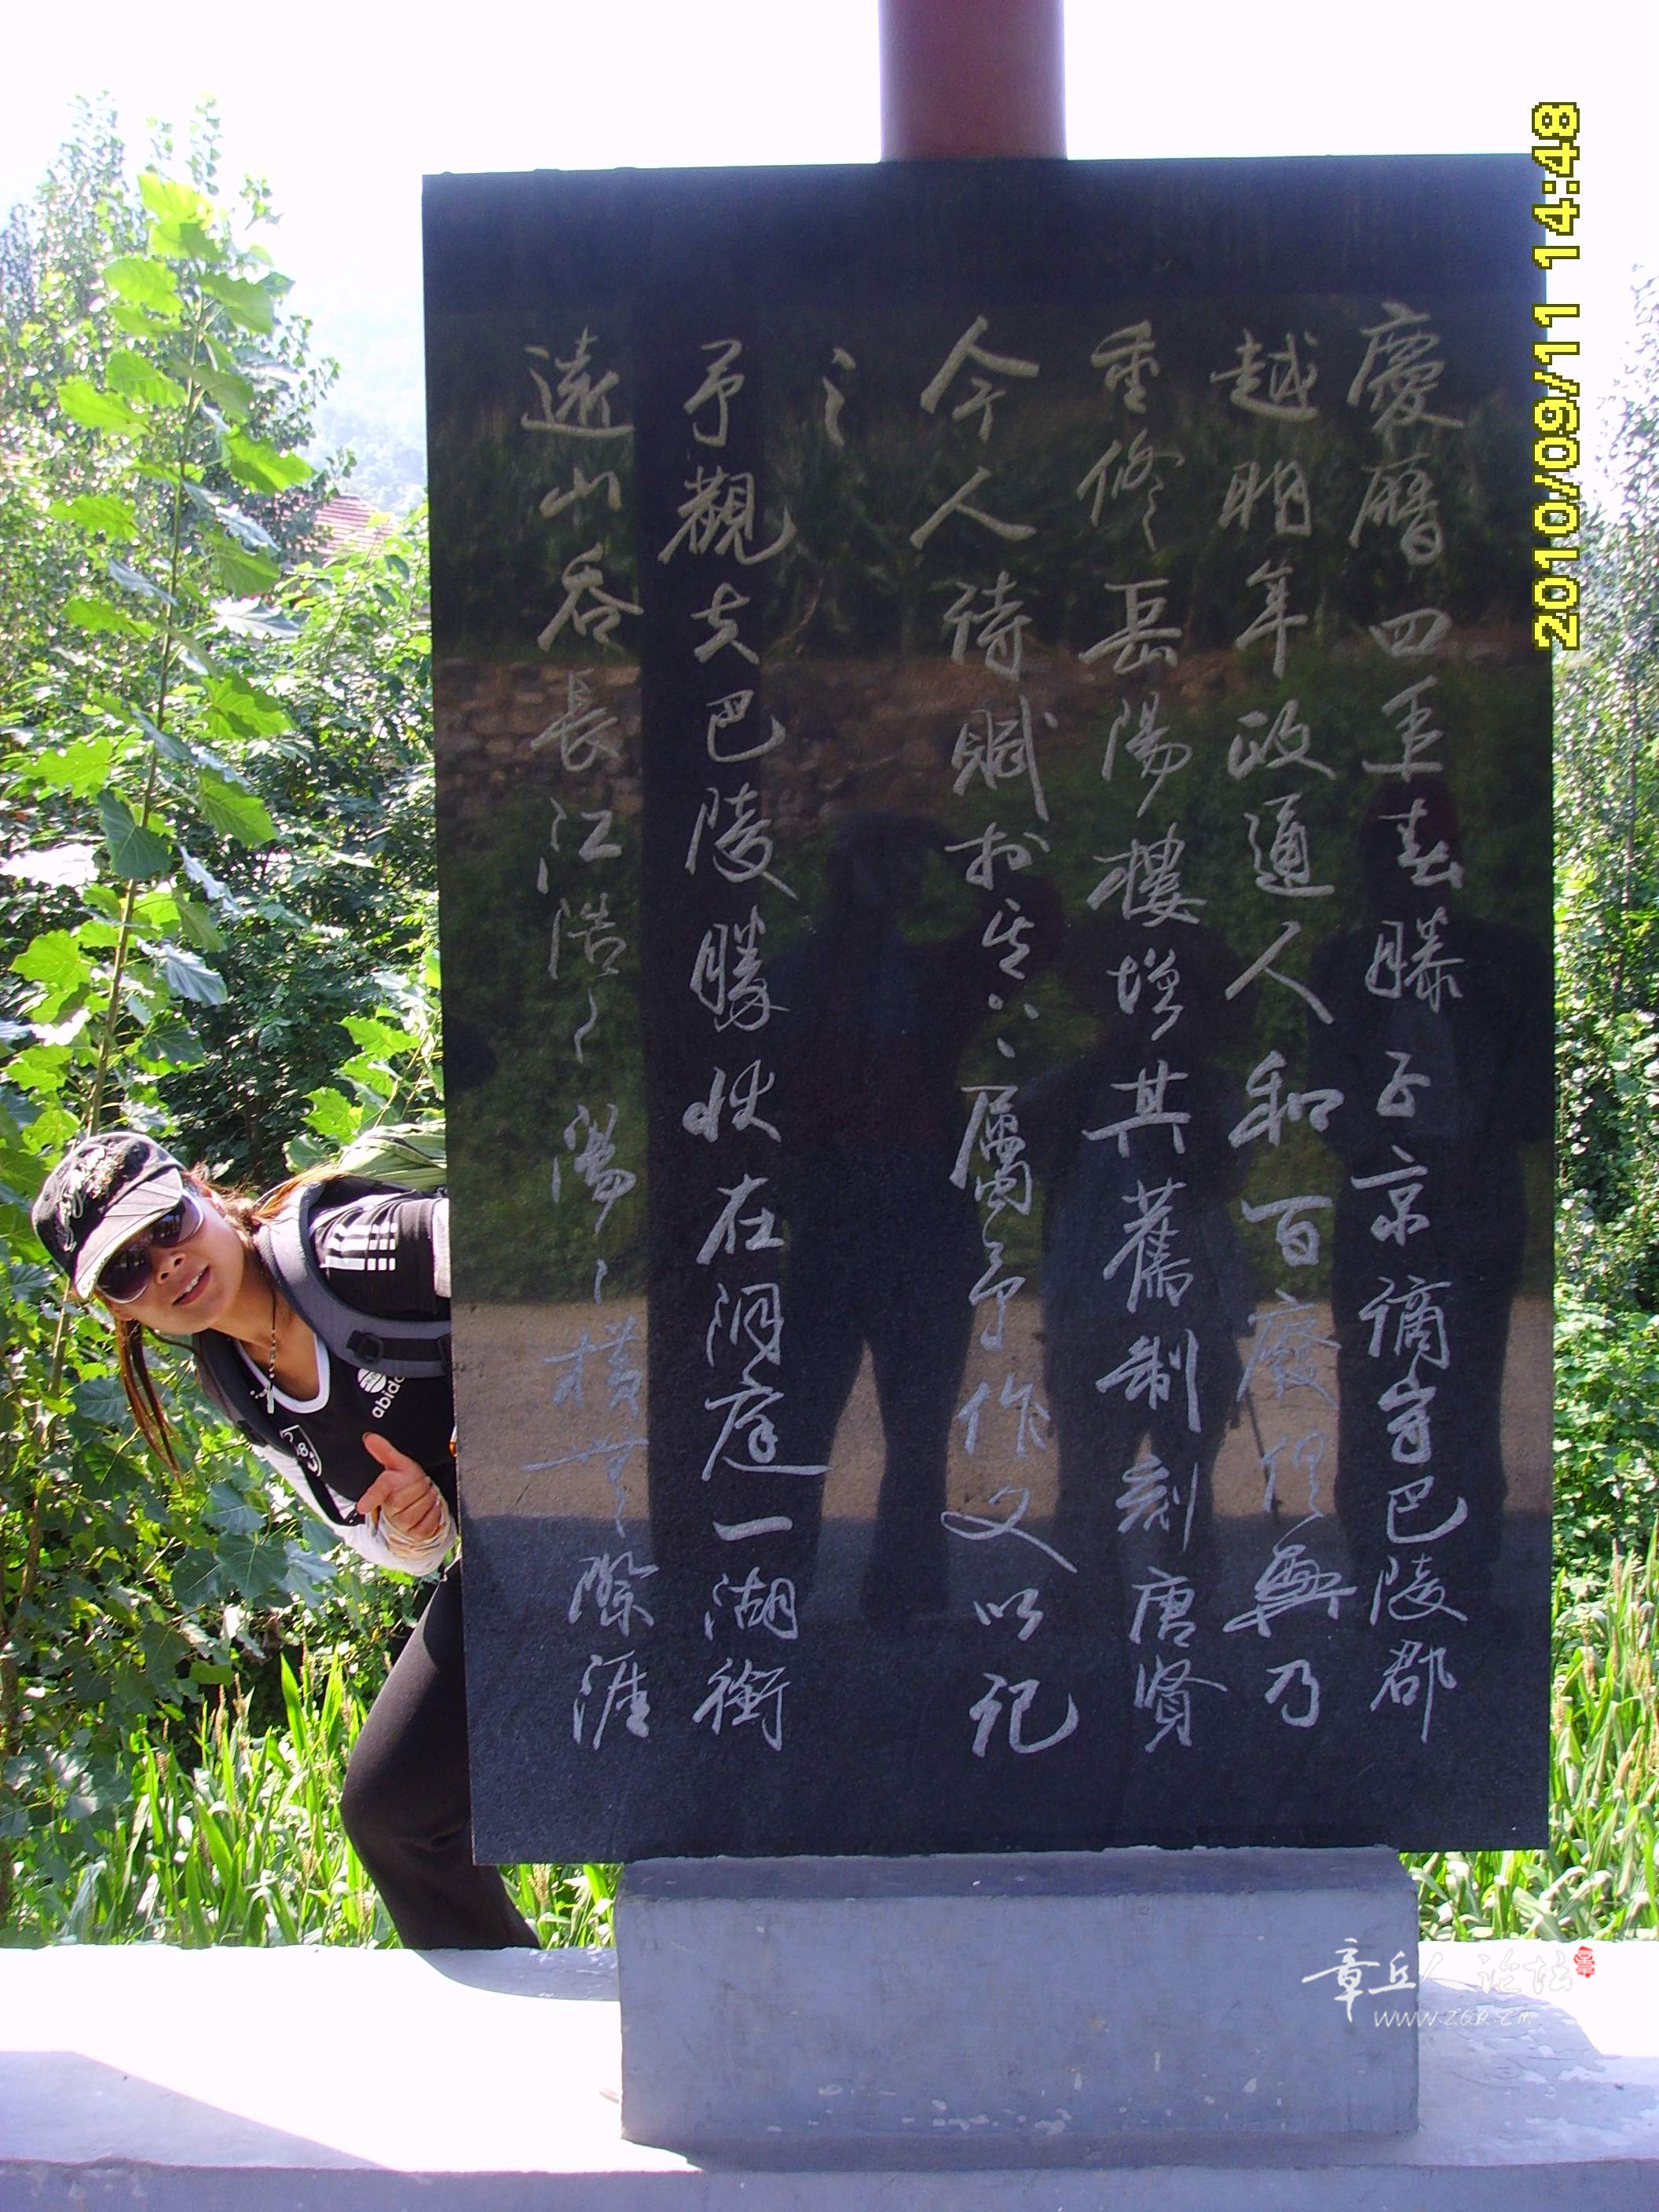 慶曆四年春滕子京謫守巴陵郡
越明年政通人和百廢俱興乃
重修岳陽樓增其舊制刻唐賢
今人詩賦於其上屬予作文以記
之
予觀夫巴陵勝狀在洞庭一湖銜
遠山吞長江浩浩湯湯橫無際涯
2010/09/11 14:48
abidas
章丘人论坛
www.zqr.cn